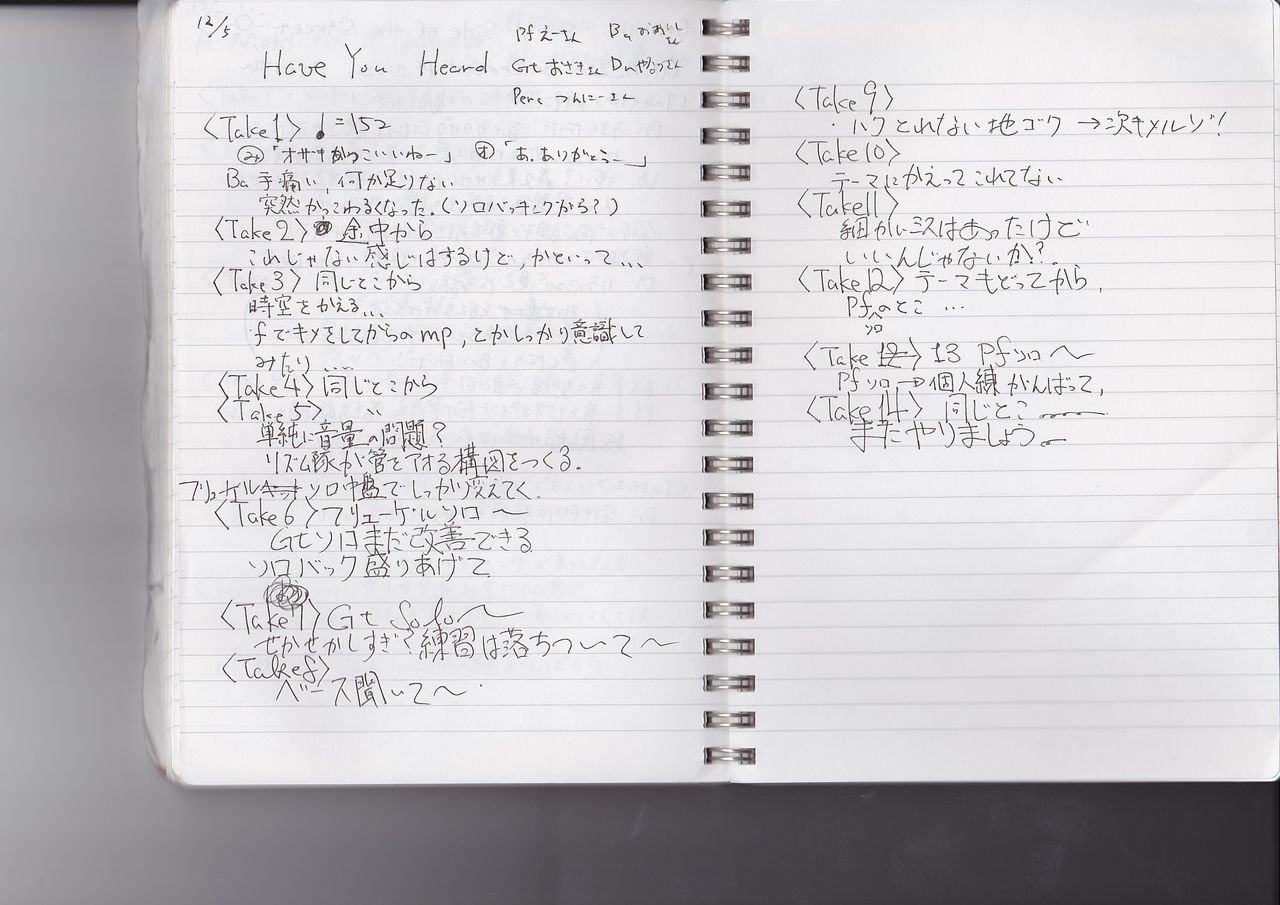 12/5
Pfえーさん Baおおいしさん
Have You Heard Gtおさきさん Dr さん
Perc つんにーさん
<Take1> ♩=152
㋯「オサキかっこいいねー」 ㋔「あ、ありがとぅー」
Ba 手痛い、何か足りない
突然かっこわるくなった。(ソロバッキングから?)
<Take2> 途中から
これじゃない感じはするけど、かといって…
<Take3> 同じとこから
時空をかえる…
fでキメをしてからのmp、とかしっかり意識して
みたり….
<Take4> 同じとこから
<Take5> 〃
単純に音量の問題?
リズム隊が管をアオる構図をつくる.
フリューゲル ソロ中盤でしっかり変えてく.
<Take6> フリューゲルソロ〜
Gtソロまだ改善できる
ソロバック盛りあげて
<Take7> Gt Solo〜
せかせかしすぎ?練習は落ちついて〜
<Take8>
ベース聞いて〜
<Take9>
・ハクとれない地ゴク →次キメルゾ!
<Take10>
テーマにかえってこれてない
<Take11>
細かいミスはあったけど
いいんじゃないか?
<Take12> テーマもどってから、
Pfソロのとこ …
<Take 12> 13 Pfソロ〜
Pfソロ→個人練がんばって、
<Take14> 同じとこ
またやりましょう〜